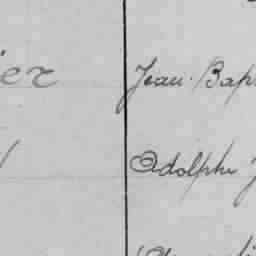 ier Jean-Bap
Adolphe J